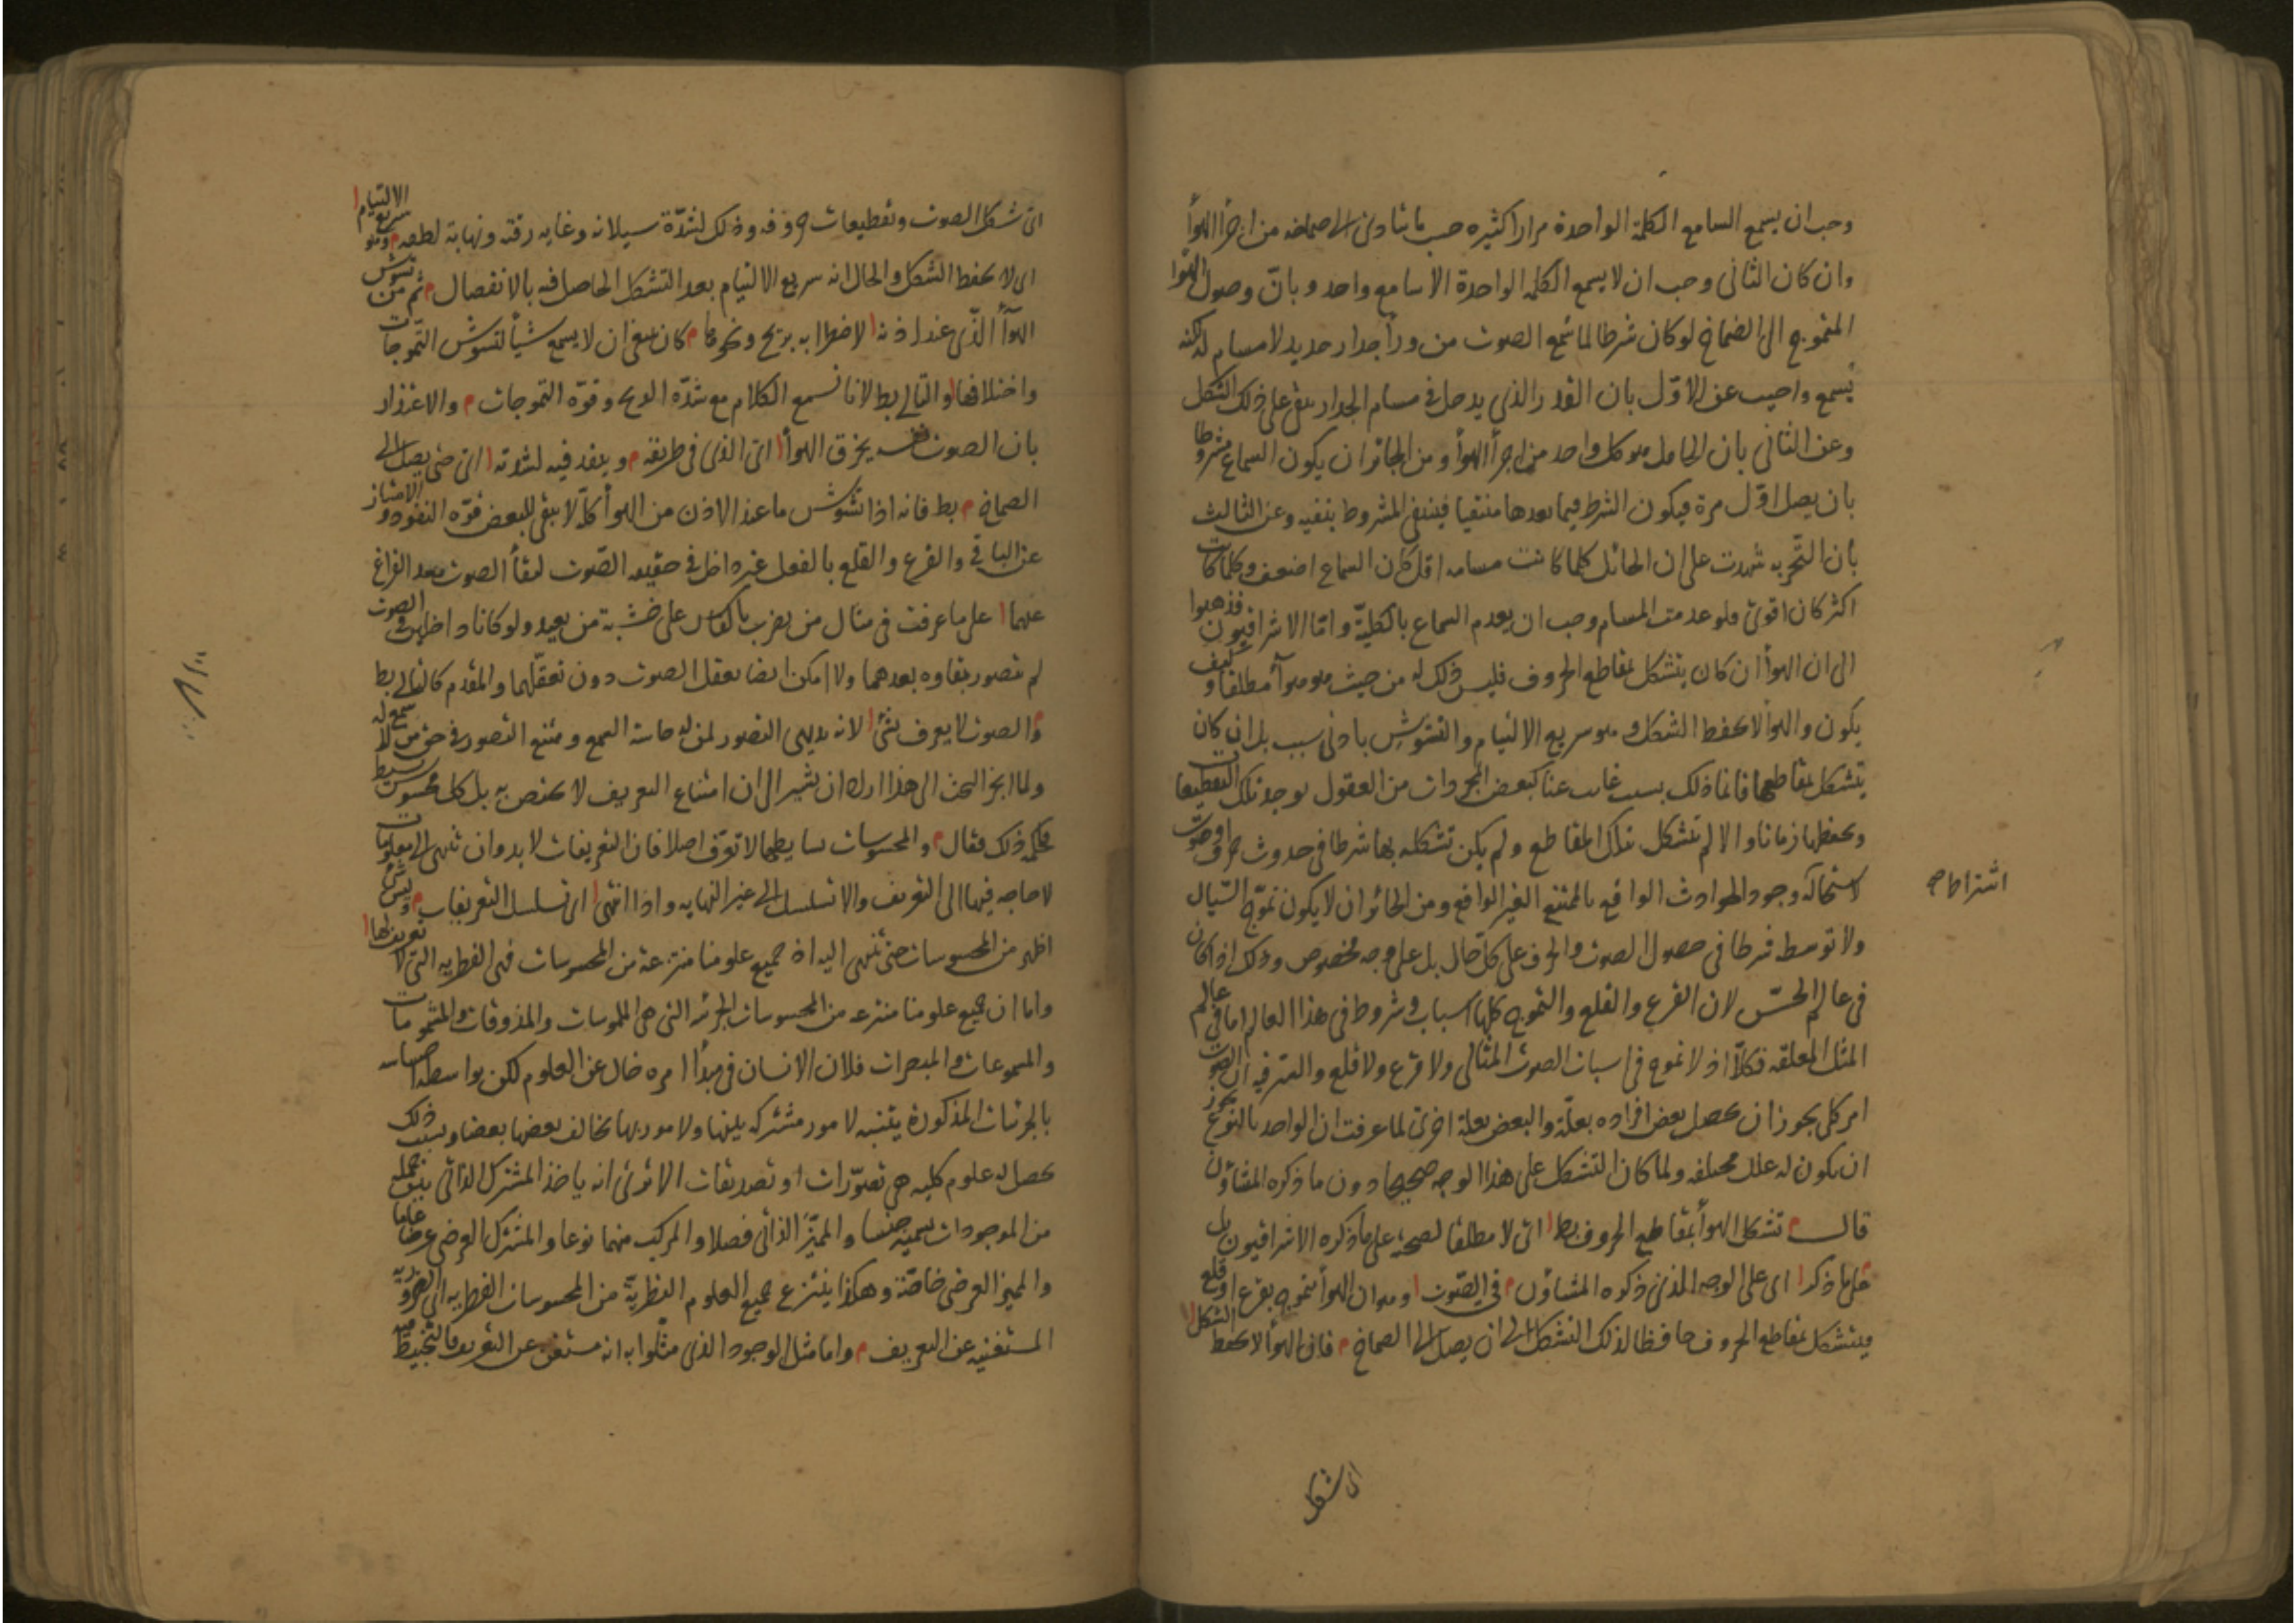 وجب ان يسمع السامع الكلمة الواحدة مرارا كثيره حسب ما يتادى الى صماخه من اجزأ الهوأ
وان كان الثانى وجب ان لا يسمع الكلمه الواحدة الا سامع واحد و بانّ وصول الهوا
المتموج الى الصماخ لو كان شرطا لما سمع الصوت من ورأ جدار حديد لا مسام له لكنه
يسمع واجيب عن الاوّل بان القدر الذي يدخل فى مسام الجدار يبقى على ذلك الشكل
وعن الثانى بان الحامل هو كل واحد من اجزأ الهوأ ومن الجائز ان يكون السماع مشروطا
بان يصل اوّل مرة فيكون الشرط فيما بعدها منتفيا فينتفى المشروط بنفيه وعن الثالث
بان التجربه شهدت على ان الحائل كلما كانت مسامه اقل كان السماع اضعف وكلما كانت
اكثر كان اقوى فلو عدمت المسام وجب ان يعدم السماع بالكليّة وامّا الاشراقيون فذهبوا
الى ان الهوأ ان كان يتشكل بمقاطع الحروف فليس ذلك له من حيث هو هوأ مطلقا وكيف
يكون والهوأ لا يحفظ الشكل و هو سريع الالتيام والتشوش بادنى سبب بل ان كان
يتشكل بمقاطعها فانما ذلك بسبب غائب عنا كبعض المجردات من العقول يوجد تلك التقطيعات
ويحفظها زمانا والا لم يتشكل بتلك المقاطع ولم يكن تشكله بها شرطا فى حدوث حرف او صوت
لاستحالة وجود الحوادث الواقع بالممتنع الغير الواقع ومن الجائز ان لا يكون تموّج السّيال
اشتراط
ولا توسط شرطا فى حصول الصوت والحرف على كل حال بل على وجه مخصوص وذلك اذا كان
فى عالم الحسّ لان القرع والقلع والتموج كلها اسباب و شروط فى هذا العالم اما فى عالم
المثل المعلقه فكلّا اذ لا تموج فى اسباب الصوت المثالى ولا قرع ولا قلع والسر فيه ان الصوت
امر كلى يجوز ان يحصل بعض افراده بعلّة والبعض بعلة اخرى لما عرفت ان الواحد بالنوع يجوز
ان يكون له علل مختلفه ولما كان التشكل على هذا الوجه صحيحا دون ما ذكره المشاؤن
قال تشكل الهوأ بمقاطع الحروف بط اى لا مطلقا لصحته على ما ذكره الاشراقيون بل
على ما ذكر اى على الوجه الذى ذكره المشاؤن فى الصّوت وهو ان الهوأ يتموج بقرع او قلع
ويتشكل بمقاطع الحروف حافظا لذلك التشكل الى ان يصل الى الصماخ فان الهوأ لا يحفظ الشكل
اى شكل
اى شكل الصوت وتقطيعات حروفه وذلك لشدّة سيلانه وغايه رقته ونهاية لطفه وهو سريع الالتيام
اى لا يحفظ الشكل والحال انه سريع الالتيام بعد التشكل الحاصل فيه بالانفصال ثم من تشوش
الهوأ الذى عند اذنه لاضطرابه بريح ونحوها كان ينبغى ان لا يسمع شيأ لتشوش التموجات
واختلافها والتالى بط لانا نسمع الكلام مع شدّه الريح وقوّه التموجات والاعتذار
بان الصوت نفسه يخرق الهوأ اى الذى فى طريقه وينفد فيه لشدته اى حتى يصل الى
الصماخ بط فانه اذا تشوش ما عند الاذن من الهوأ كلّه لا يبقى للبعض قوّه النفود والامتياز
عن الباقى والقرع والقلع بالفعل غير داخل فى حقيقه الصّوت لبقأ الصوت بعد الفراغ
عنهما على ما عرفت فى مثال من يضرب بالفأس على خشبة من بعيد ولو كانا داخلين فى الصوت
لم يتصور بقاوه بعدهما ولا امكن ايضا تعقل الصوت دون تعقلهما والمقدم كالتالى بط
والصوت لا يعرف بشئ لانه بديهى التصور لمن له حاسة السمع وممتنع التصور فى حق من لا سمع له
ولما انجر البحث الى هذا اراد ان يشير الى ان امتناع التعريف لا يختص به بل كل محسوس بسيط
حكمه ذلك فقال والمحسوسات بسايطها لا تعرّف اصلا فان التعريفات لا بد وان تنتهى الى معلومات
لا حاجه فيها الى التعريف والا تسلسل الى غير النهايه واذا انتهى اى تسلسل التعريفات وليس شئ
اظهر من المحسوسات حتى تنتهى اليه اذ جميع علومنا منتزعة من المحسوسات فهى الفطريه التى لا تعريف لها
واما ان جميع علومنا منتزعه من المحسوسات الجزئيه التى هى الملموسات والمذوقات والمشمومات
والمسموعات والمبصرات فلان الانسان فى مبدأ امره خال عن العلوم لكن بواسطه احساسه
بالجزئيات المذكورة يتنبه لامور مشتركه بينها ولامور بها يخالف بعضها بعضا وبسبب ذلك
يحصل له علوم كليه هى تصوّرات او تصديقات الا ترى انه ياخذ المشترك الذاتى بين جمله
من الموجودات يسميه جنسا والمميّز الذاتى فصلا والمركب منهما نوعا والمشترك العرضى عرضا عاما
والمميز العرضى خاصّة وهكذا ينتزع جميع العلوم النظريّة من المحسوسات الفطريه اى الضروريه
المستغنيه عن التعريف واما مثل الوجود الذى مثّلوا به انه مستغن عن التعريف فالتخبيط فيه